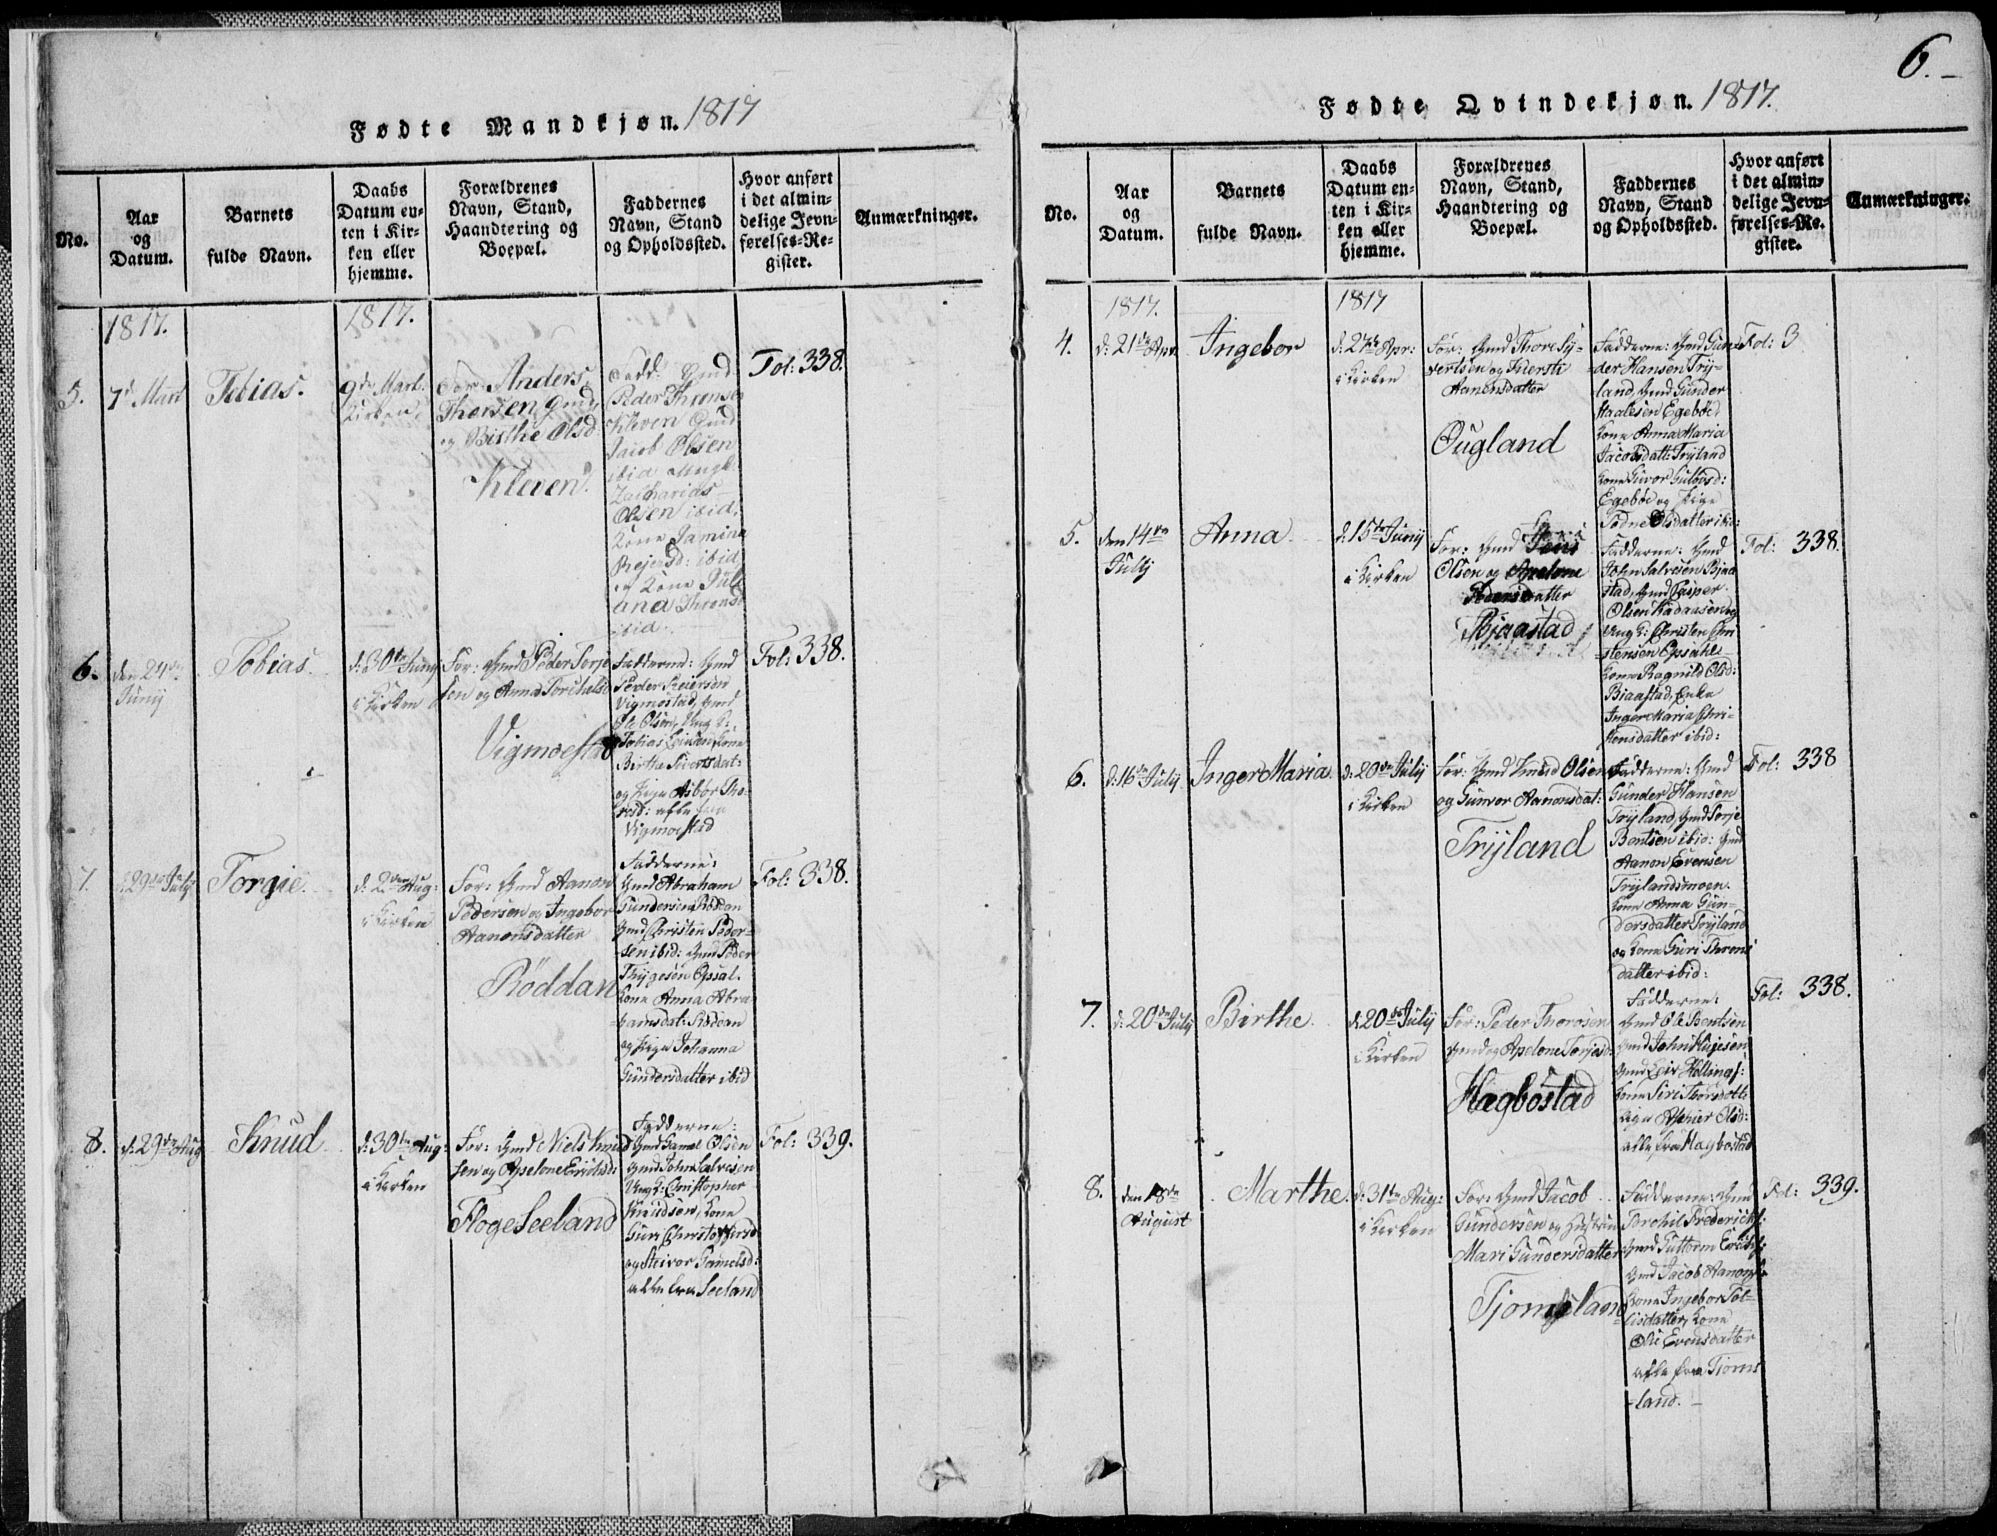 6.
Fødte Mandkjøn. 1817
No.
Aar
og
Datum.
Barnets
fulde Navn.
Daabs
Datum en-
ten i Kir-
ken eller
hjemme.
Forældrenes
Navn, Stand,
Haandtering og
Boepæl.
Faddernes
Navn, Stand
og Opholdssted.
Hvor anført
i det almin-
delige Jevn-
førelses-Re-
gister.
Anmærkninger.
1817.
1817.
5.
7d Mart
Tobias.
9de Mart.
Kirken,
For: Anders
Thorsen Gmd
og Birthe Olsd:
Kleven.
Fadd: Gmd
Peder Thronse
Kleven Gmd
Jacob Olsen
ibid Ungk:
Zacharias
Olsen ibid,
Kone Jamina
Rejersd: ibid
og Kone Juli
ana Thronsd
ibid.
Fol: 338.
6.
den 24de
Junij
Tobias.
d: 30te Junij
i Kirken
For: Gmd Peder Torje
sen og Anna Torchelsd
Vigmoestad
Fadderne: Gmd
Peder Reiersen
Vigmostad, Gmd
Ole Olsen, Ung K:
Tobias Kone
Birthe Sivertsdat:
og Pige Asbor Tho-
alle fra
Vigmoestad
Fol: 338.
7.
d: 29de July
Torgie.
d: 2den Aug:
i Kirken
For: Gmd Aanon
Pedersen og Ingebor
Aanonsdatter
Röddan
Fadderne:
Gmd Abraham
Gundersen Röddan
Gmd Christen Peder-
sen ibid: Gmd Peder
Thygesen Opsal.
Kone Anna Abra-
hamsdat: Röddan
og Pige Johanna
Gundersdatter ibid
Fol: 338.
8.
d: 29de Aug
Knud
d: 30te Aug:
i Kirken
For: Gmd Niels Knud
sen og Apelone Erichsd:
Floge Seeland
Fadderne:
Gmd Gamel Olsen
Gmd John Salvesen
Ungk: Christopher
Knudsen, Kone
Guri Christophersd
og Steivor Gamelsd:
alle fra Seeland
Fol: 339.
Fødte Qvindekjøn. 1817.
No.
Aar
og
Datum.
Barnets
fulde Navn.
Daabs
Datum en-
ten i Kir-
ken eller
hjemme.
Forældrenes
Navn, Stand,
Haandtering og
Boepæl.
Faddernes
Navn, Stand
og Opholdssted.
Hvor anført
i det almin-
delige Jevn-
førelses-Re-
gister.
Anmærkninger.
1817.
1817
4.
d: 21de Apr.
Ingebor
d: 27de Apr:
i Kirken
For: Gmd Thore Sy-
vertsen og Kiersti
Aanensdatter
Ougland
Fadderne: Gmd Gun-
der Hansen Try-
land, Gmd Gunder
Staalesen Egebøe
Kone Anna Maria
Jacobsdatt: Tryland
Kone Gunvor Gulovsd:
Egebøe og Pige
Tødne Olsdatter ibi:
Fol: 3
5.
den 14de
July
Anna
d: 15de Junij
i Kirken
For: Gmd Jens
Olsen og Apelone
Pedersdatter
Bjaastad
Fadderne: Gmd
John Salvesen Bjaa
stad, Gmd Casper
Olsen Kadaasen og
Ung K: Christen Chri
stensen Opsahl
Kone Ragnild Olsd:
Biaastad, Enke
Inger Maria Chri-
stensdatter ibid:
Fol: 338.
6.
d: 16de July
Inger Maria
d: 20de July
i Kirken
For: Gmd Knud Olsen
og Gunvor Aanonsdat:
Tryland
Fadderne: Gmd
Gunder Hansen
Tryland, Gmd Torje
Bentsen ibid: Gmd
Aanon Evensen
Trylandsmoen.
Kone Anna Gun-
dersdatter Tryland
og Kone Guri Throns
datter ibid:
Fol: 338
7.
d: 20de July
Birthe
d: 20de July
i Kirken
For: Peder Thorosen
Gmd og Apelone Torjesd:
Hægbostad
Fadderne:
Gmd Ole Bentsen
Gmd John
Gmd Leiv
Kone Siri Thorsdatt:
Pige Olsd:
alle fra Hægbostad
Fol: 338.
8.
den 18de
August
Marthe.
d: 31te Aug:
i Kirken
For: Gmd Jacob
Gundersen og Hustrue
Mari Gundersdatter
Tjomsland
Fadderne: Gmd
Torchil Fredericks:
Gmd Guttorm Erichs:
Gmd Jacob Aanons:
Kone Ingebor Tol-
lisdatter, Kone
Olie Evensdatter
alle fra Tjoms
-land.
Fol: 339.